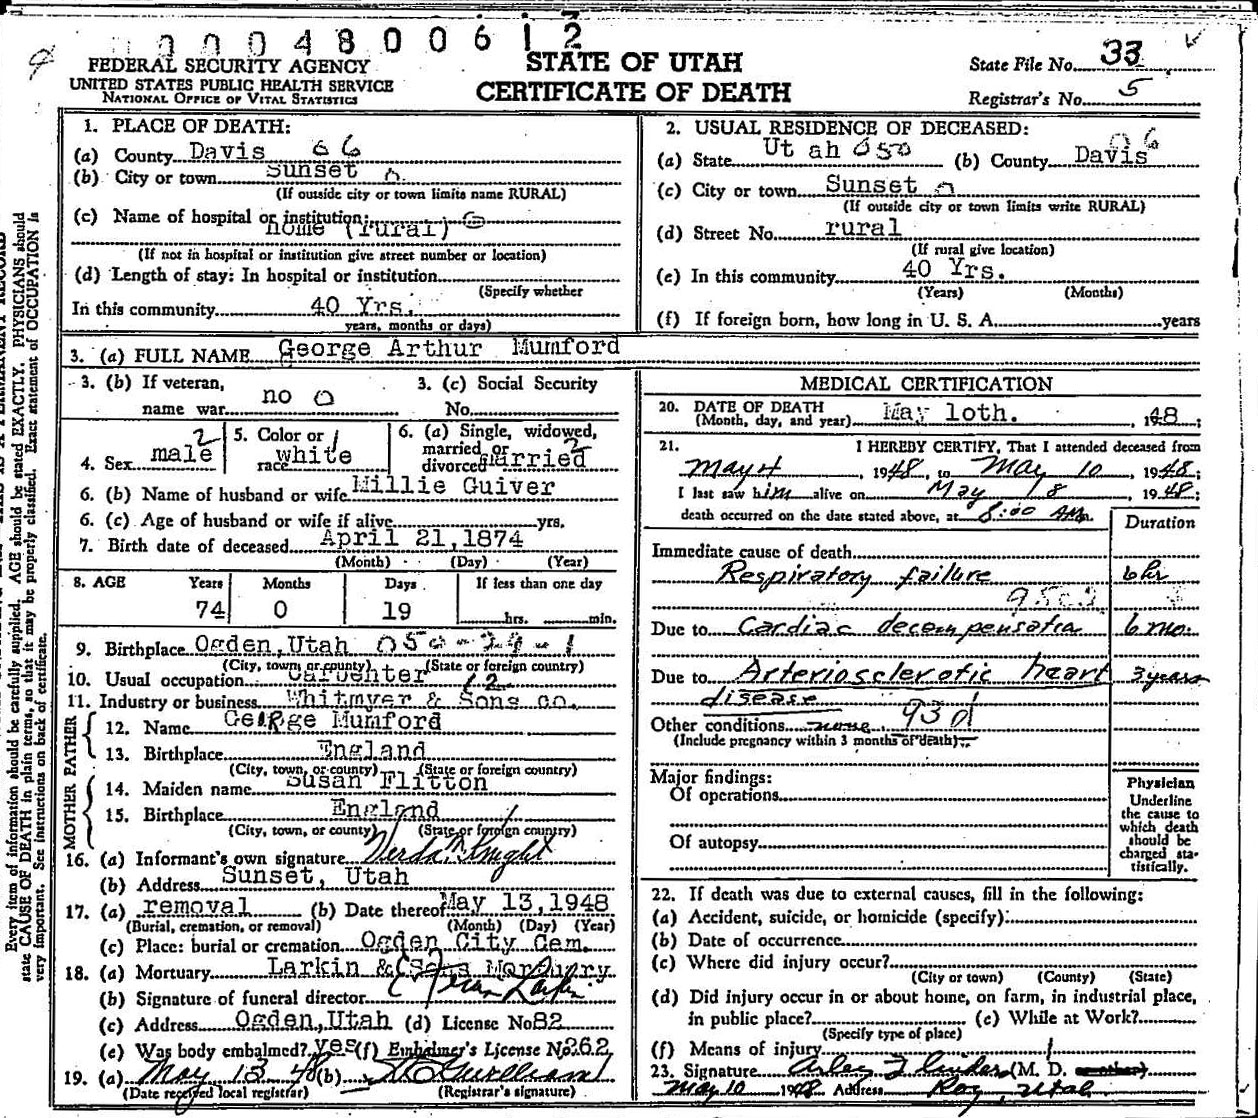 00048006 1 2
FEDERAL SECURITY AGENCY
UNITED STATES PUBLIC HEALTH SERVICE
NATIONAL OFFICE OF VITAL STATISTICS
STATE OF UTAH
CERTIFICATE OF DEATH
State File No. 33
Registrar's No. 5
Every item of information should be carefully supplied. AGE should be stated EXACTLY. PHYSICIANS should
state CAUSE OF DEATH in plain terms, so that it may be properly classified. Exact statement of OCCUPATION is
very important. See instructions on back of certificate.
1. PLACE OF DEATH:
(a) County Davis 06
(b) City or town Sunset 0
(If outside city or town limits name RURAL)
(c) Name of hospital or institution:
home (rural) 0
(If not in hospital or institution give street number or location)
(d) Length of stay: In hospital or institution
(Specify whether
In this community 40 Yrs.
years, months or days)
2. USUAL RESIDENCE OF DECEASED:
(a) State Ut ah 050 (b) County Davis 06
(c) City or town Sunset 0
(If outside city or town limits write RURAL)
(d) Street No. rural
(If rural give location)
(e) In this community 40 Yrs.
(Years) (Months)
(f) If foreign born, how long in U. S. A. years
3. (a) FULL NAME George Arthur Mumford
3. (b) If veteran,
name war no 0
3. (c) Social Security
No.
4. Sex male 2
5. Color or
race white 1
6. (a) Single, widowed,
married or
divorced Married 2
6. (b) Name of husband or wife Millie Guiver
6. (c) Age of husband or wife if alive yrs.
7. Birth date of deceased April 21,1874
(Month) (Day) (Year)
8. AGE Years Months Days If less than one day
74 0 19 hrs. min.
9. Birthplace Ogden,Utah 050-29-1
(City, town, or county) (State or foreign country)
10. Usual occupation Carpenter
11. Industry or business Whitmyer & Sons co. 12
FATHER
12. Name George Mumford
13. Birthplace England
(City, town, or county) (State or foreign country)
MOTHER
14. Maiden name Susan Flitton
15. Birthplace England
(City, town, or county) (State or foreign country)
16. (a) Informant's own signature Verda M. Knight
(b) Address Sunset, Utah
17. (a) removal (b) Date thereof May 13,1948
(Burial, cremation, or removal) (Month) (Day) (Year)
(c) Place: burial or cremation Ogden City Cem.
18. (a) Mortuary Larkin & Sons Mortuary
(b) Signature of funeral director Larkin
(c) Address Ogden,Utah (d) License No 82
(e) Was body embalmed? yes (f) Embalmer's License No 262
19. (a) May 13 48 (b)
(Date received local registrar) (Registrar's signature)
MEDICAL CERTIFICATION
20. DATE OF DEATH
(Month, day, and year) May 10th. , 1948;
21. I HEREBY CERTIFY, That I attended deceased from
May 4 , 1948, to May 10 , 1948;
I last saw him alive on May 8 , 1948;
death occurred on the date stated above, at 8:00 AM.
Duration
Immediate cause of death
Respiratory failure 6 hr
Due to Cardiac decompensatia 6 mo.
Due to Arteriosclerotic heart 3 years
disease 93d
Other conditions none
(Include pregnancy within 3 months of death)
Major findings:
Of operations
Of autopsy
Physician
Underline
the cause to
which death
should be
charged sta-
tistically.
22. If death was due to external causes, fill in the following:
(a) Accident, suicide, or homicide (specify):
(b) Date of occurrence
(c) Where did injury occur?
(City or town) (County) (State)
(d) Did injury occur in or about home, on farm, in industrial place,
in public place? (e) While at Work?
(Specify type of place)
(f) Means of injury
23. Signature (M. D. or other)
May 10 1948 Address Roy, Utah